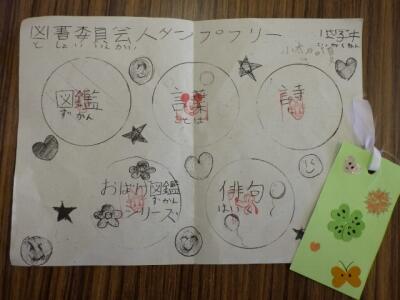 図書委員会スタンプフリー
としょいいんかい
図鑑
ずかん
言葉
ことば
詩
おばけ図鑑
ずかん
シリーズ
俳句
はいく